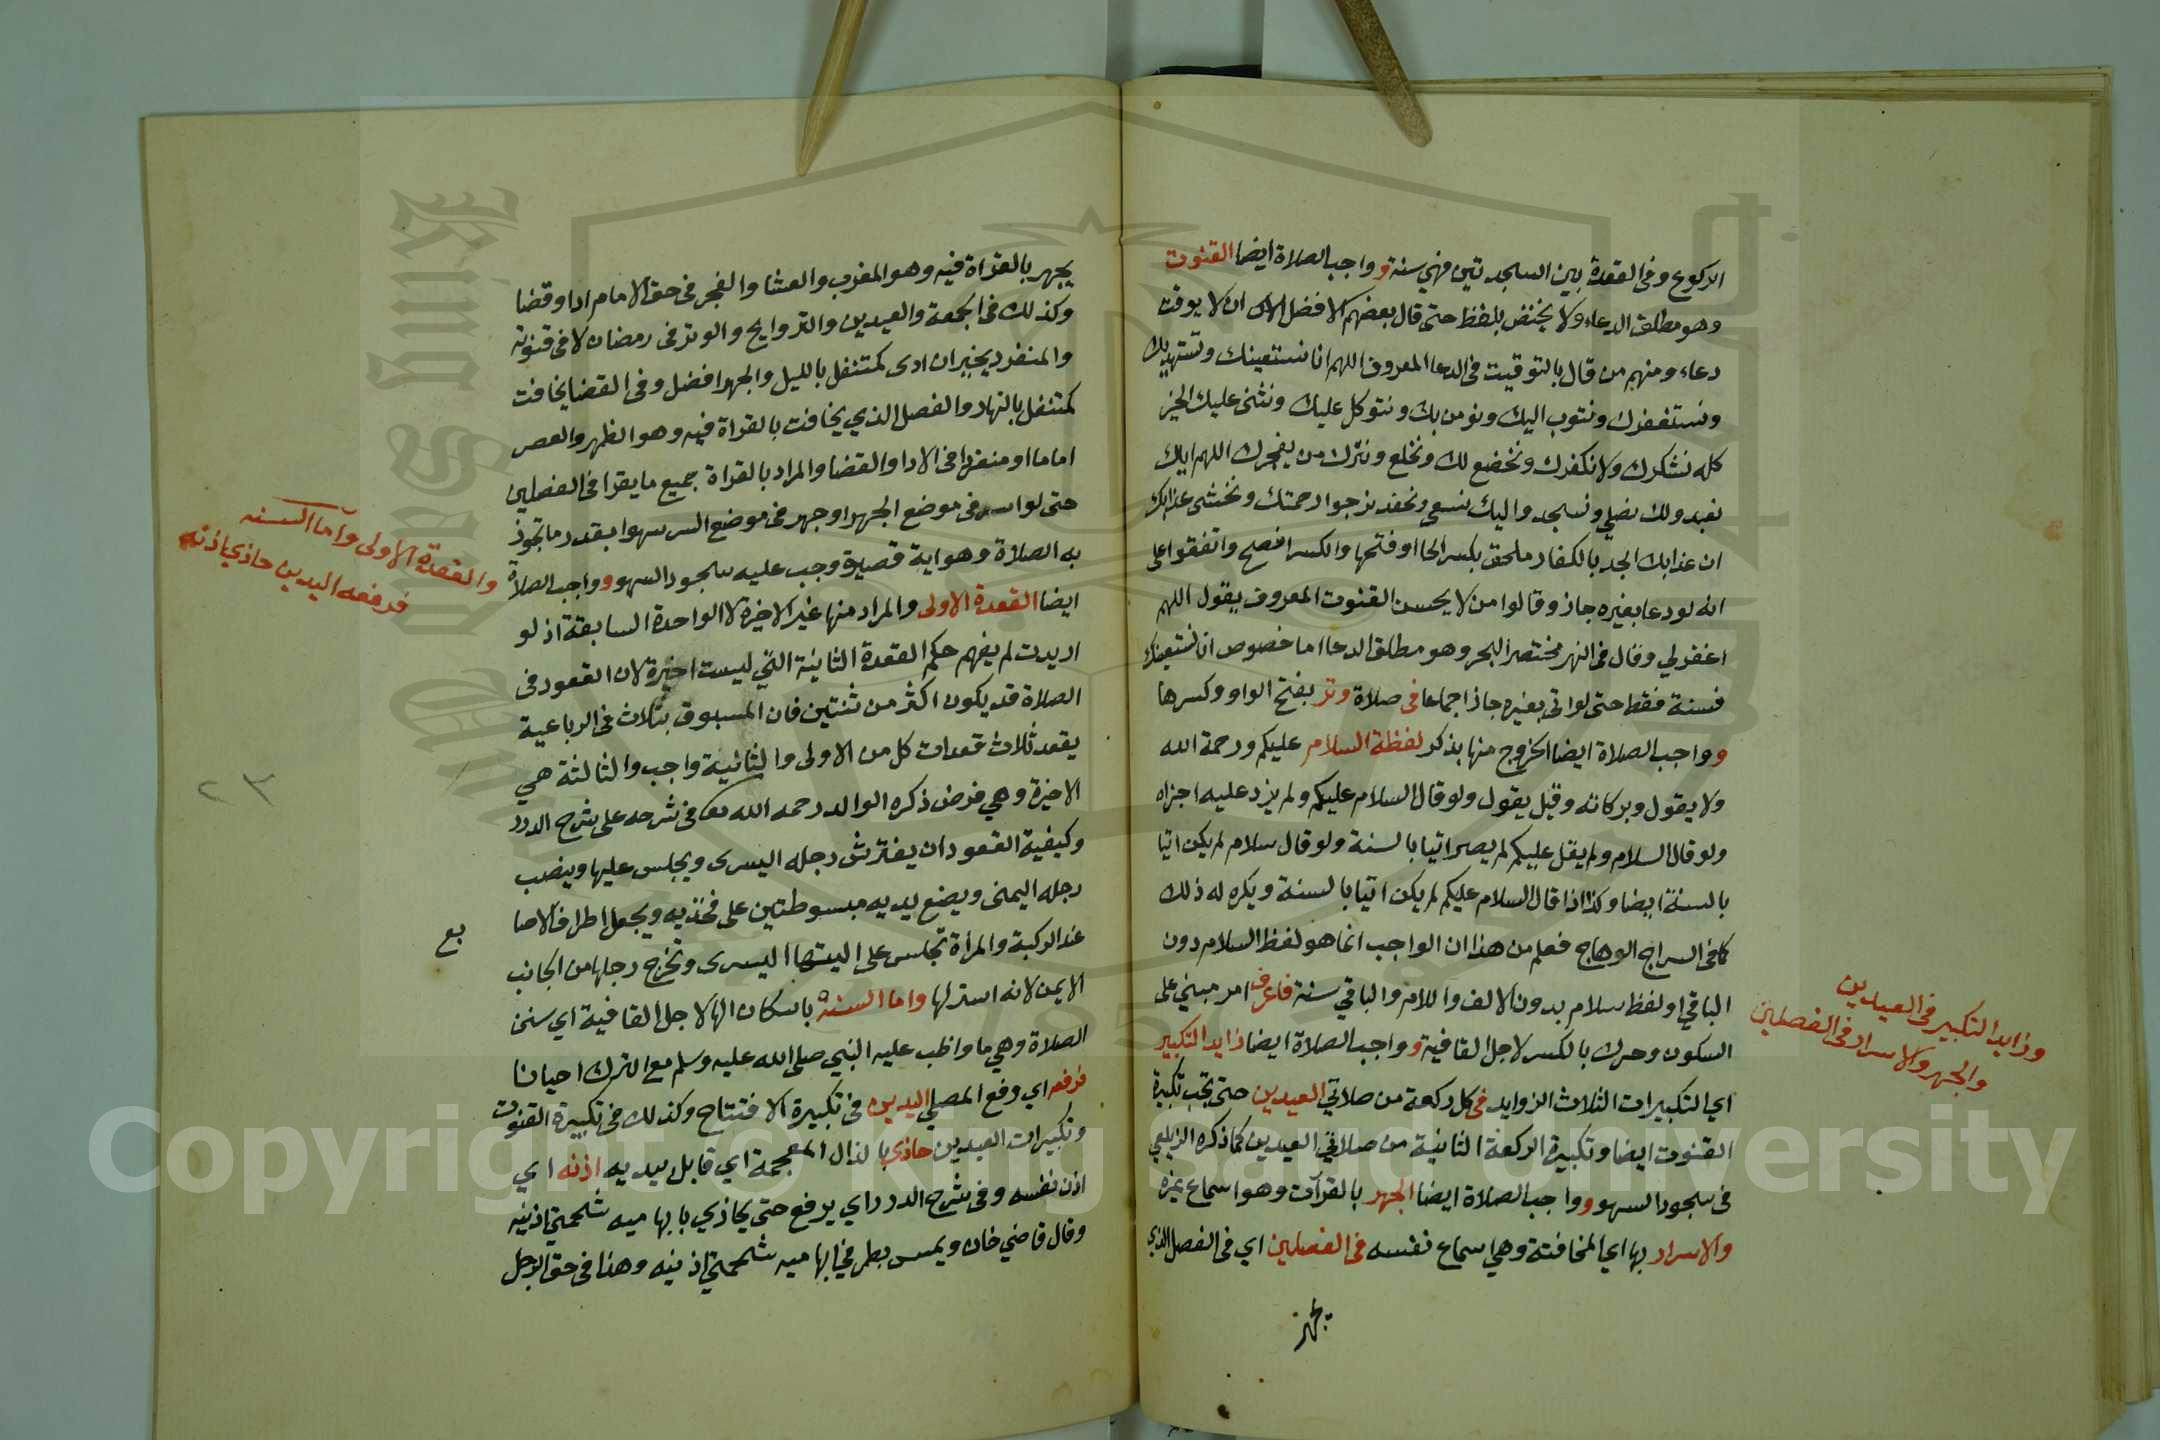 الركوع وفي القعدة بين السجدتين فهي سنة و واجب الصلاة ايضا القنوت
وهو مطلق الدعاء ولا يختص بلفظ حتى قال بعضهم الافضل ان لا يوقت
دعاء ومنهم من قال بالتوقيت في الدعا المعروف اللهم انا نستعينك ونستهديك
ونستغفرك ونتوب اليك ونومن بك ونتوكل عليك ونثني عليك الخير
كله نشكرك ولا نكفرك ونخضع لك ونخلع ونترك من يفجرك اللهم اياك
نعبد ولك نصلي ونسجد واليك نسعى ونحفد نرجوا رحمتك ونخشى عذابك
ان عذابك الجد بالكفار ملحق بكسر الحا او فتحها والكسر افصح واتفقوا على
انه لو دعا بغيره جاز وقالوا من لا يحسن القنوت المعروف يقول اللهم
اغفر لي وقال في النهر مختصر البحر وهو مطلق الدعا اما خصوص انا نستعينك
فسنة فقط حتى لو اتى بغيره جاز اجماعا في صلاة وتر بفتح الواو وكسرها
و واجب الصلاة ايضا الخروج منها بذكر لفظة السلام عليكم ورحمة الله
ولا يقول وبركاته وقيل يقول ولو قال السلام عليكم ولم يزد عليه اجزاه
ولو قال السلام ولم يقل عليكم لم يصر اتيا بالسنة ولو قال سلام لم يكن اتيا
بالسنة ايضا وكذا اذا قال السلام عليكم لم يكن اتيا بالسنة ويكره له ذلك
كما في السراج الوهاج فعلم من هذا ان الواجب انما هو لفظ السلام دون
الباقي او لفظ سلام بدون الالف واللام والباقي سنة فاعرف امر مبني على
السكون وحرك بالكسر لاجل القافية و واجب الصلاة ايضا زايد التكبير
اي التكبيرات الثلاث الزوايد في كل ركعة من صلاتي العيدين حتى تجب تكبيرة
القنوت ايضا وتكبيرة الركعة الثانية من صلاتي العيدين كما ذكره الزيلعي
في سجود السهو و واجب الصلاة ايضا الجهر بالقرآت وهو اسماع غيره
والاسرار بها اي المخافتة وهي اسماع نفسه في الفصلين اي في الفصل الذي
يجهر
وزايد التكبير في العيدين
والجهر والاسرار في الفصلين
يجهر بالقراة فيه وهو المغرب والعشا والفجر في حق الامام ادا وقضا
وكذلك في الجمعة والعيدين والتراويح والوتر في رمضان لا في قنوته
والمنفرد يخير ان ادى كمتنفل بالليل والجهر افضل وفي القضا يخافت
كمتنفل بالنهار والفصل الذي يخافت بالقراة فيه وهو الظهر والعصر
اماما او منفردا في الادا والقضا والمراد بالقراة جميع ما يقرا في الفصلين
حتى لو اسر في موضع الجهر او جهر في موضع السر سهوا بقدر ما تجوز
به الصلاة وهو اية قصيرة وجب عليه سجود السهو و واجب الصلاة
ايضا القعدة الاولى والمراد منها غير الاخيرة لا الواحدة السابقة اذ لو
اريدت لم يفهم حكم القعدة الثانية التي ليست اخيرة لان القعود في
الصلاة قد يكون اكثر من ثنتين فان المسبوق بثلاث في الرباعية
يقعد ثلاث قعدات كل من الاولى والثانية واجب والثالثة هي
الاخيرة وهي فرض ذكره الوالد رحمه الله تعا في شرحه على شرح الدرر
وكيفية القعود ان يفترش رجله اليسرى ويجلس عليها وينصب
رجله اليمنى ويضع يديه مبسوطتين على فخذيه ويجعل اطراف الاصا
بع
عند الركبة والمراة تجلس على اليتها اليسرى وتخرج رجلها من الجانب
الايمن لانه استر لها واما السنه باسكان الها لاجل القافية اي سنن
الصلاة وهي ما واظب عليه النبي صلى الله عليه وسلم مع الترك احيانا
فرفعه اي رفع المصلي اليدين في تكبيرة الافتتاح وكذلك في تكبيرة القنوت
وتكبيرات العيدين حاذي بالذال المعجمة اي قابل بيديه اذنه اي
اذن نفسه وفي شرح الدرر اي يرفع حتى يحاذي بابهاميه شحمتي اذنيه
وقال قاضي خان ويمس بطرفي ابهاميه شحمتي اذنيه وهذا في حق الرجل
والقعدة الاولى واما السنه
فرفعه اليدين حاذي اذنه
٢٣
Copyright © King Saud University